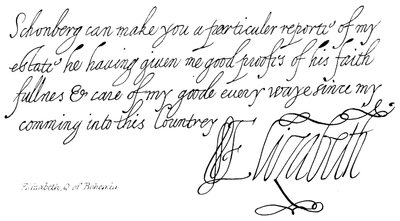 Schonberg can make you a particuler reporte of my
estate he having given me good proofs of his faith
fullnes & care of my goode every waye since my
comming into this Countrey
Elizabeth
Elizabeth, Q. of Bohemia